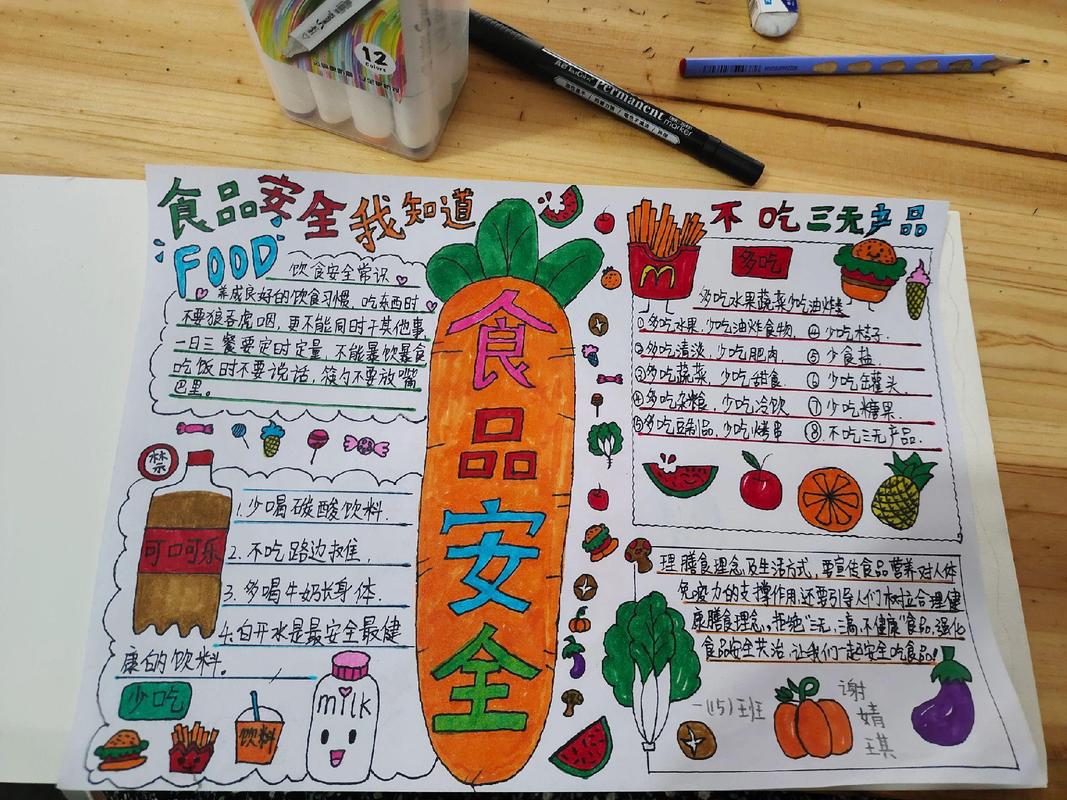 食品安全我知道
FOOD
饮食安全常识
养成良好的饮食习惯，吃东西时
不要狼吞虎咽，更不能同时干其他事
一日三餐要定时定量，不能暴饮暴食
吃饭时不要说话，筷勺不要放嘴
巴里。
禁
可口可乐
1.少喝碳酸饮料.
2.不吃路边
3.多喝牛奶长身体.
4.白开水是最安全最健
康的饮料。
少吃
饮料
milk
食品安全
不吃三无产品
多吃
多吃水果蔬菜少吃油炸
①多吃水果，少吃油炸食物.
②多吃清淡，少吃肥肉
③多吃蔬菜，少吃甜食.
④多吃杂粮食，少吃冷饮
⑤多吃豆制品，少吃烤串
④少吃桔子.
⑤少食盐.
⑥少吃罐头.
⑦少吃糖果.
⑧不吃三无产品.
理膳食理念及生活方式，要宣传食品营养对人体
免疫力的支撑作用，还要引导人们树立合理健
康膳食理念，拒绝"三无，三高，不健康"食品，强化
食品安全共治，让我们一起安全吃食品！
一(15)班
谢
婧
琪
12
Colors
Permanent
marker